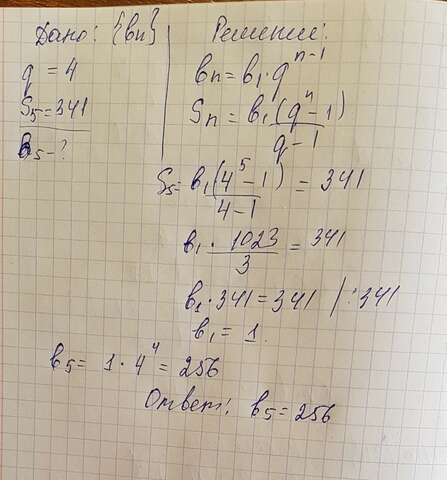 Дано: {bn}
q = 4
S₅ = 341
b₅ - ?
Решение:
bn = b₁ · q^(n-1)
Sn = b₁(qⁿ - 1) / (q - 1)
S₅ = b₁(4⁵ - 1) / (4 - 1) = 341
b₁ · 1023 / 3 = 341
b₁ · 341 = 341 / : 341
b₁ = 1.
b₅ = 1 · 4⁴ = 256
Ответ: b₅ = 256